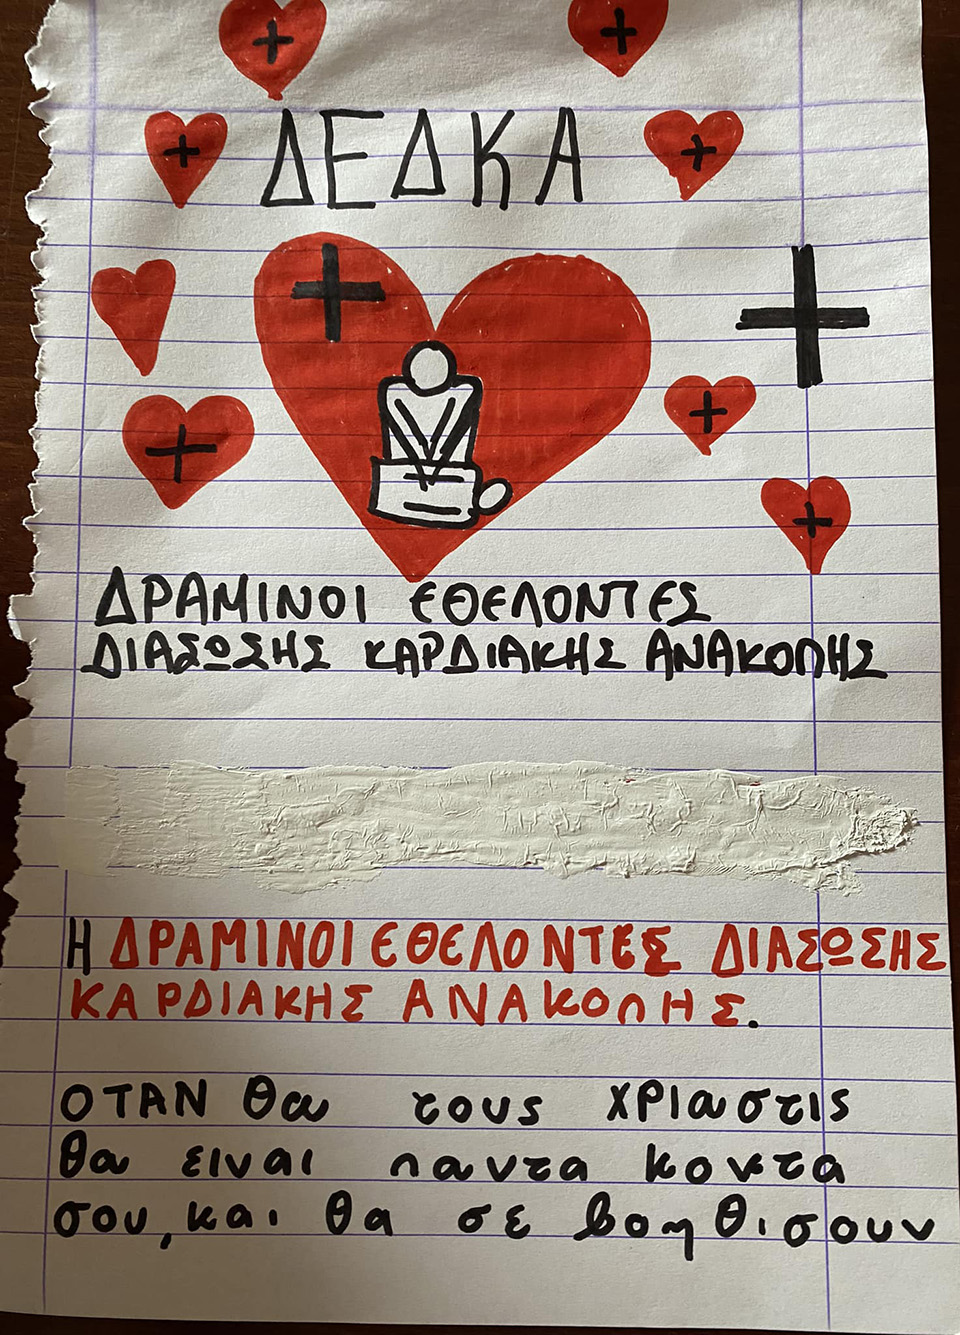 ΔΕΔΚΑ
ΔΡΑΜΙΝΟΙ ΕΘΕΛΟΝΤΕΣ
ΔΙΑΣΩΣΗΣ ΚΑΡΔΙΑΚΗΣ ΑΝΑΚΟΠΗΣ
Η ΔΡΑΜΙΝΟΙ ΕΘΕΛΟΝΤΕΣ ΔΙΑΣΩΣΗΣ
ΚΑΡΔΙΑΚΗΣ ΑΝΑΚΟΠΗΣ.
ΟΤΑΝ θα τους χριαστις
θα ειναι παντα κοντα
σου, και θα σε βοηθισουν